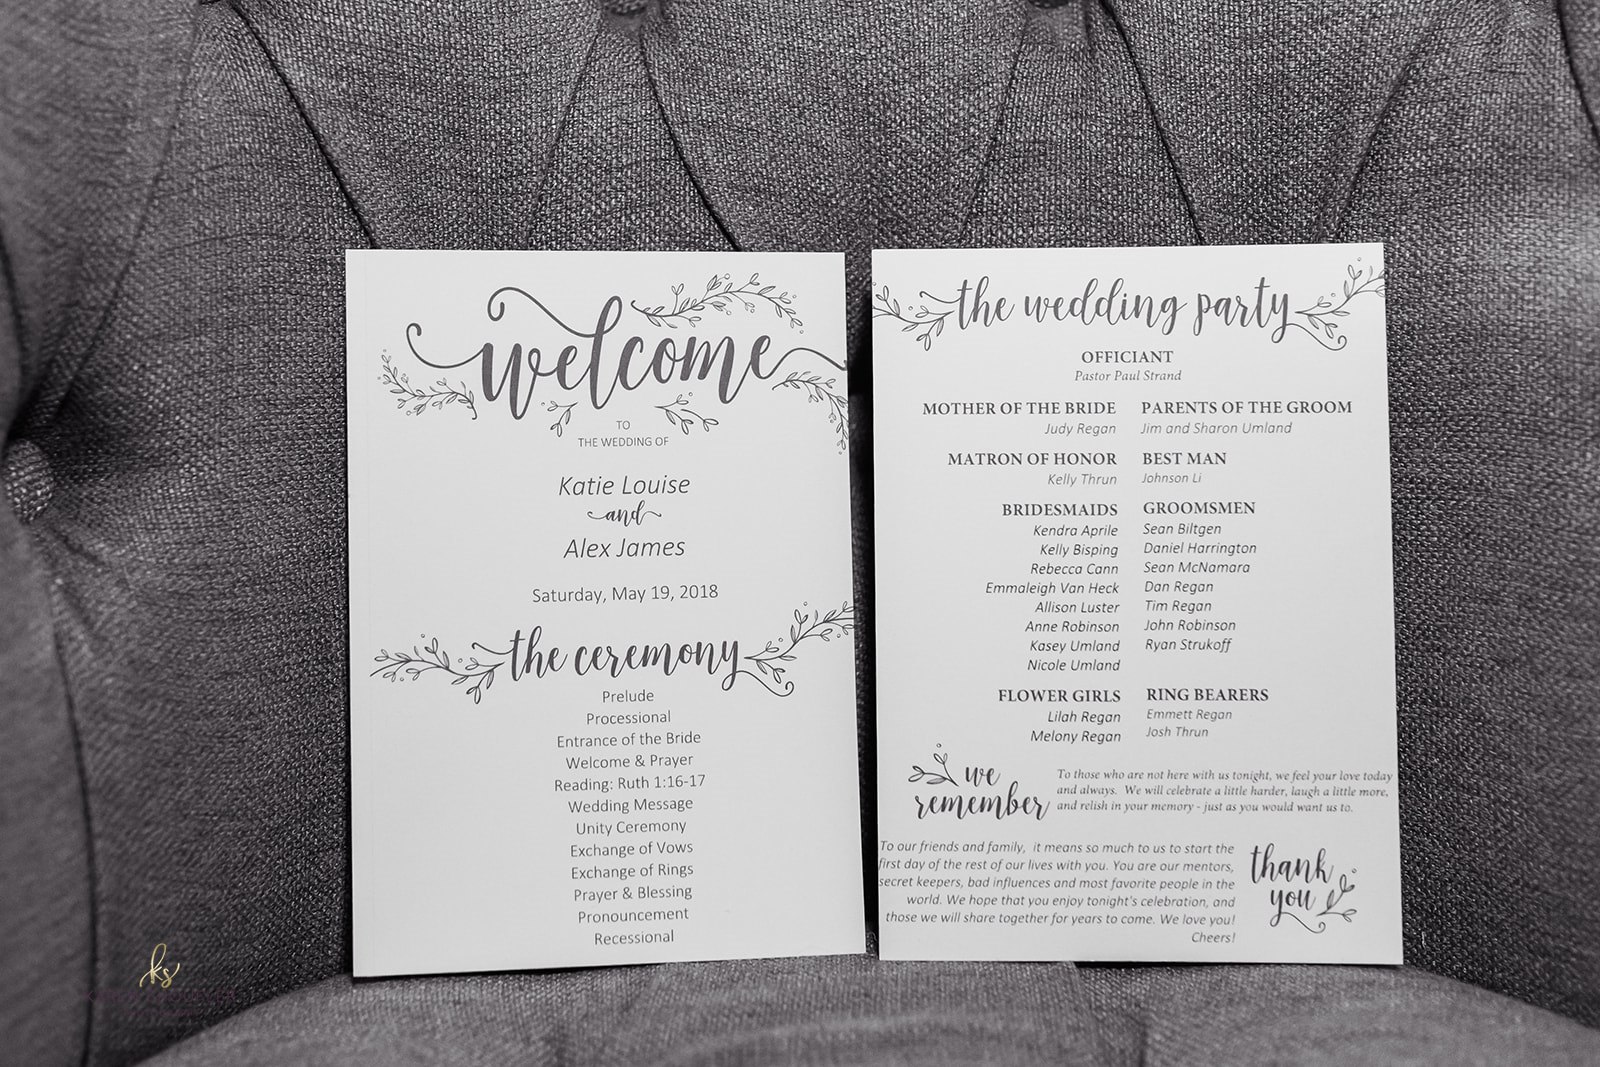 welcome
TO
THE WEDDING OF
Katie Louise
and
Alex James
Saturday, May 19, 2018
the ceremony
Prelude
Processional
Entrance of the Bride
Welcome & Prayer
Reading: Ruth 1:16-17
Wedding Message
Unity Ceremony
Exchange of Vows
Exchange of Rings
Prayer & Blessing
Pronouncement
Recessional
the wedding party
OFFICIANT
Pastor Paul Strand
MOTHER OF THE BRIDE
Judy Regan
PARENTS OF THE GROOM
Jim and Sharon Umland
MATRON OF HONOR
Kelly Thrun
BEST MAN
Johnson Li
BRIDESMAIDS
Kendra Aprile
Kelly Bisping
Rebecca Cann
Emmaleigh Van Heck
Allison Luster
Anne Robinson
Kasey Umland
Nicole Umland
GROOMSMEN
Sean Biltgen
Daniel Harrington
Sean McNamara
Dan Regan
Tim Regan
John Robinson
Ryan Strukoff
FLOWER GIRLS
Lilah Regan
Melony Regan
RING BEARERS
Emmett Regan
Josh Thrun
we
remember
To those who are not here with us tonight, we feel your love today
and always. We will celebrate a little harder, laugh a little more,
and relish in your memory - just as you would want us to.
To our friends and family, it means so much to us to start the
first day of the rest of our lives with you. You are our mentors,
secret keepers, bad influences and most favorite people in the
world. We hope that you enjoy tonight's celebration, and
those we will share together for years to come. We love you!
Cheers!
thank
you
ks